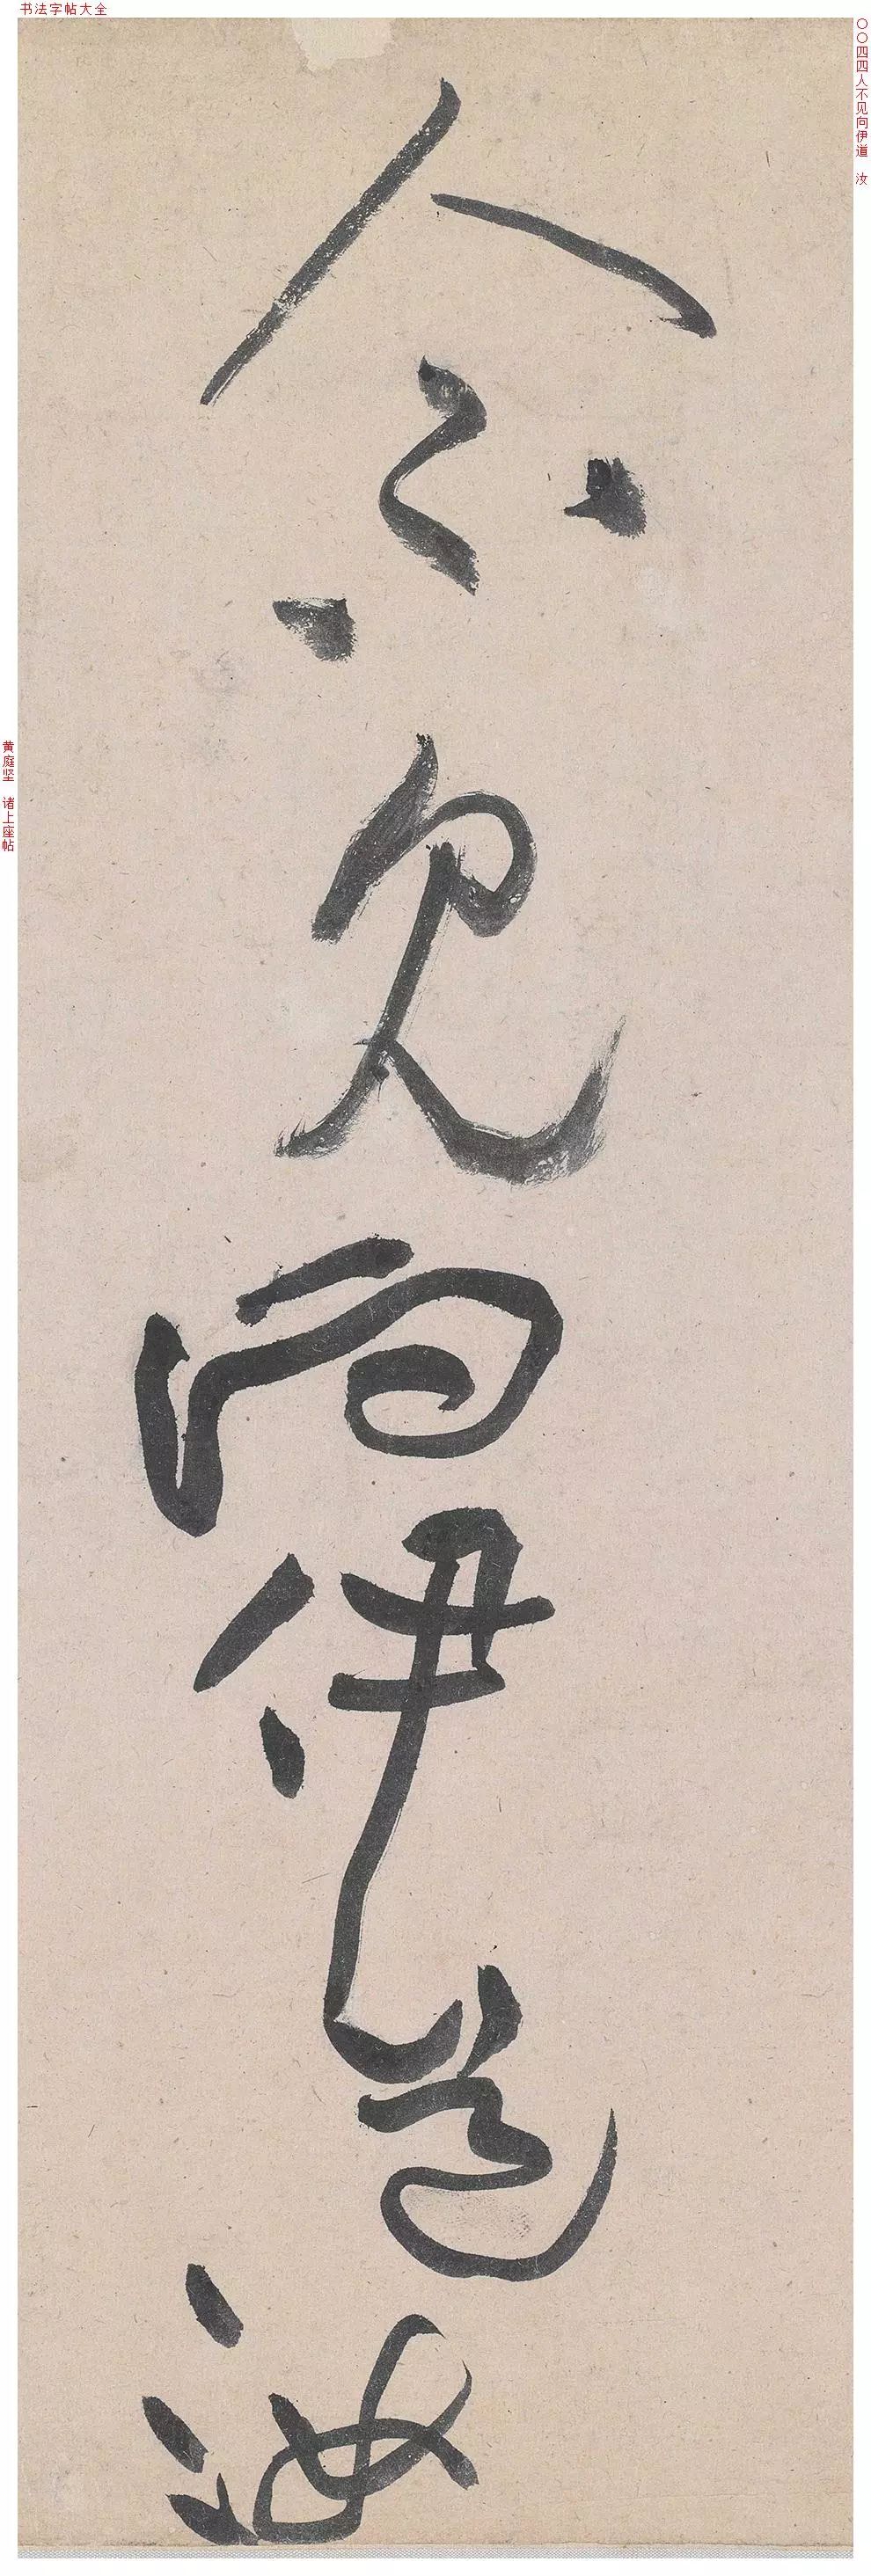 书法字帖大全
〇〇四四人不见向伊道 汝
人不見向伊道汝
黄庭坚 诸上座帖